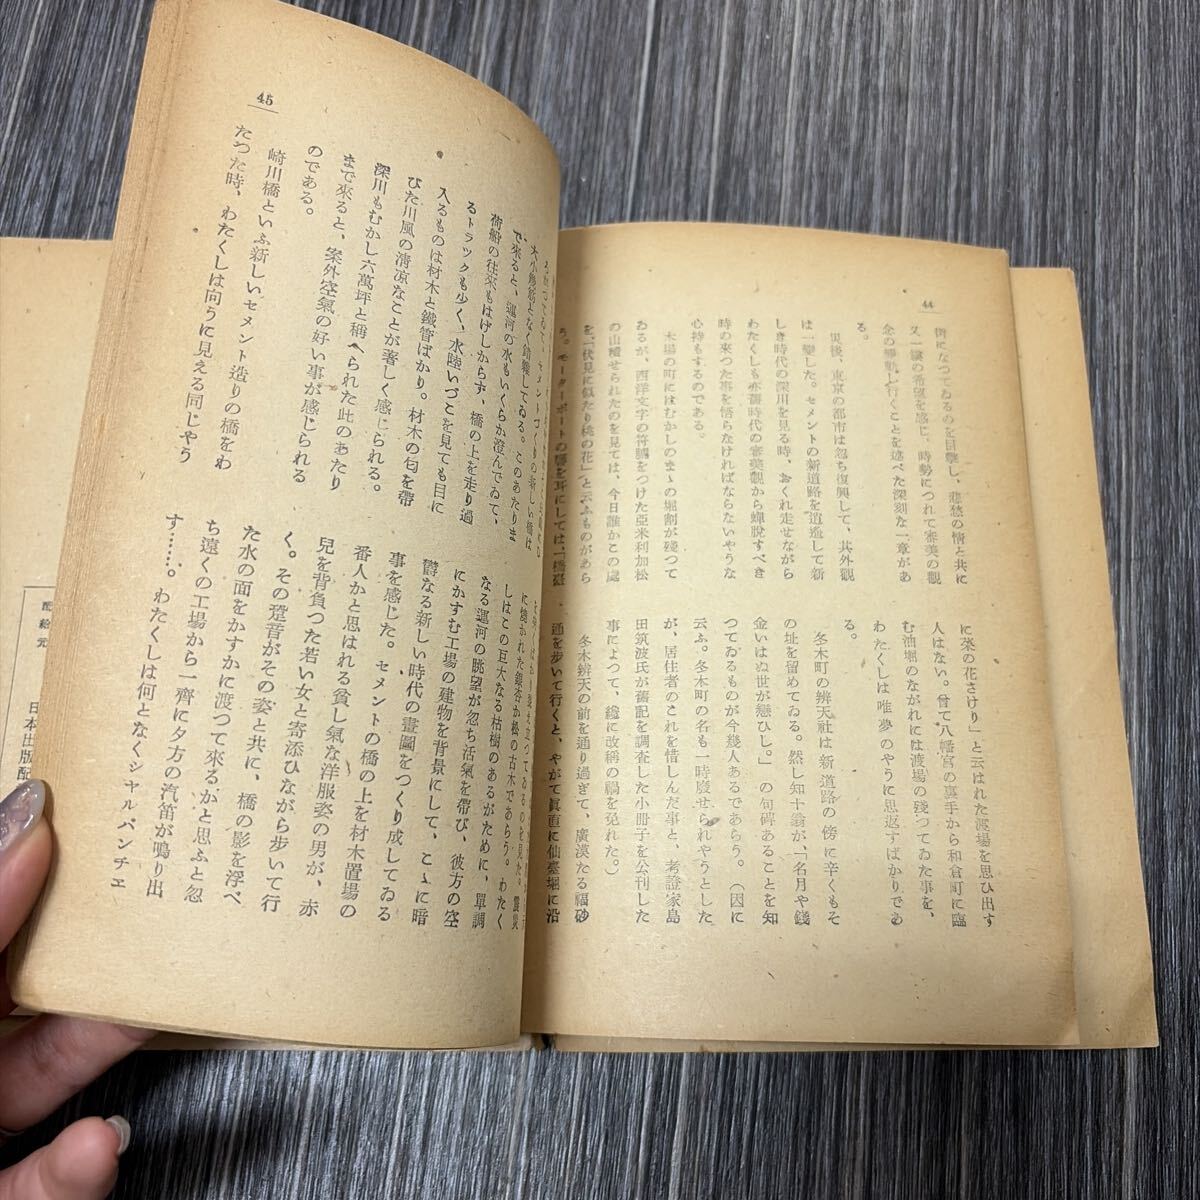 44
街になつてゐるのを目撃し、悲愁の情と共に
又一縷の希望を感じ、時勢につれて審美の觀
念の變動し行くことを述べた深刻な一章があ
る。
災後、東京の都市は忽ち復興して、其外觀
は一變した。セメントの新道路を逍遙して新
しき時代の深川を見る時、おくれ走せながら
わたくしも亦舊時代の審美觀から蟬脫すべき
時の來つた事を悟らなければならないやうな
心持もするのである。
木場の町にはむかしのまゝの堀割が殘つて
ゐるが、西洋文字の符號をつけた亞米利加松
の山積せられたのを見ては、今日誰かこの處
を、「伏見に似たり桃の花」と云ふものがあら
う。モーターボートの響を耳にしては、「橋臺
に菜の花さけり」と云はれた渡場を思ひ出す
人はない。曾て八幡宮の裏手から和倉町に臨
む油堀のながれには渡場の殘つてゐた事を、
わたくしは唯夢のやうに思返すばかりであ
る。
冬木町の辨天社は新道路の傍に辛くもそ
の址を留めてゐる。然し知十翁が、「名月や錢
金いはぬ世が戀ひし。」の句碑あることを知
つてゐるものが今幾人あるであらう。（因に
云ふ。冬木町の名も一時廢せられやうとした
が、居住者のこれを惜しんだ事と、考證家島
田筑波氏が舊記を調査した小冊子を公刊した
事によつて、纔に改稱の禍を免れた。）
冬木辨天の前を通り過ぎて、廣漠たる福砂
通を歩いて行くと、やがて眞直に仙臺堀に沿
45
大小幾筋となく錯雜してゐる。このあたりま
で來ると、運河の水もいくらか澄んでゐて、
荷船の往來もはげしからず、橋の上を走り過
るトラックも少く、水陸いづこを見ても目に
入るものは材木と鐵管ばかり。材木の匂を帶
びた川風の清凉なことが著しく感じられる。
深川もむかし六萬坪と稱へられた此のあたり
まで來ると、案外空氣の好い事が感じられる
のである。
崎川橋といふ新しいセメント造りの橋をわ
たつた時、わたくしは向うに見える同じやう
に燒かれた銀杏か松の古木であらう。わたく
しはこの巨大なる枯樹のあるがために、單調
なる運河の眺望が忽ち活氣を帶び、彼方の空
にかすむ工場の建物を背景にして、こゝに暗
鬱なる新しい時代の畫圖をつくり成してゐる
事を感じた。セメントの橋の上を材木置場の
番人かと思はれる貧し氣な洋服姿の男が、赤
兒を背負つた若い女と寄添ひながら歩いて行
く。その跫音がその姿と共に、橋の影を浮べ
た水の面をかすかに渡つて來るかと思ふと忽
ち遠くの工場から一齊に夕方の汽笛が鳴り出
す……。わたくしは何となくシャルパンチエ
配給元
日本出版配